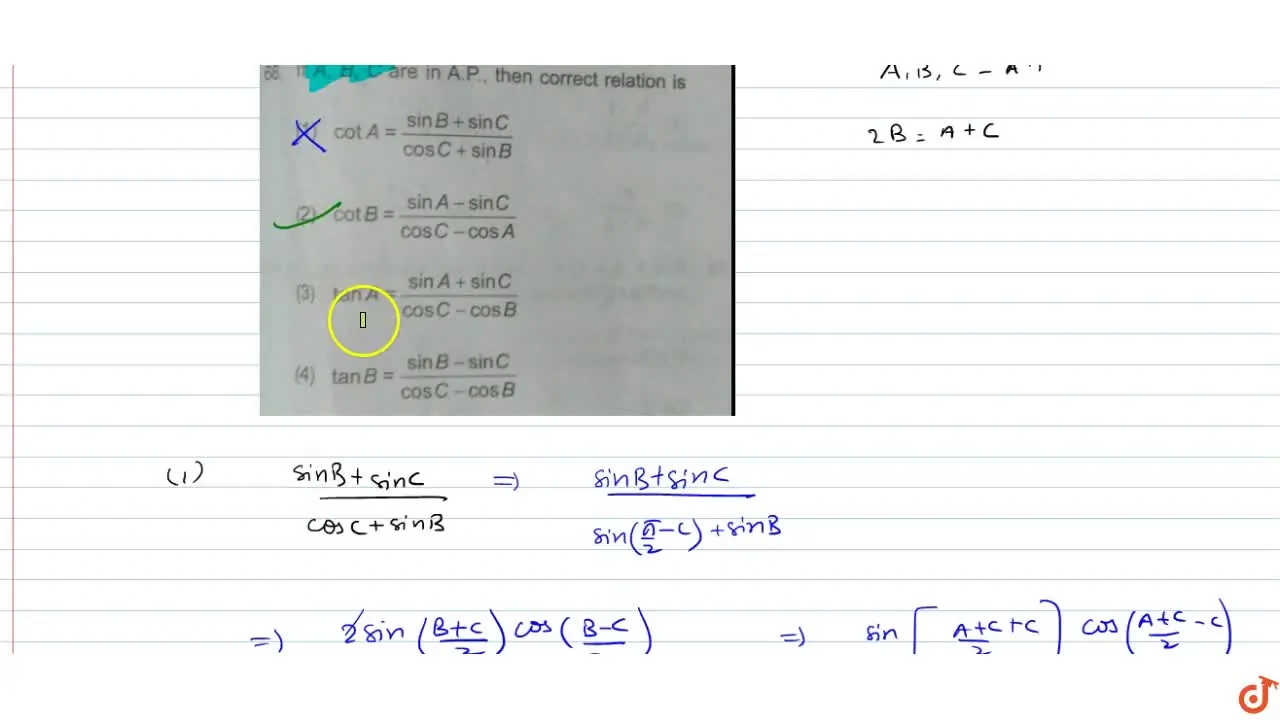 68. If A, B, C are in A.P., then correct relation is
(1) cot A = (sin B + sin C)/(cos C + sin B)
(2) cot B = (sin A − sin C)/(cos C − cos A)
(3) tan A = (sin A + sin C)/(cos C − cos B)
(4) tan B = (sin B − sin C)/(cos C − cos B)
A, B, C – A.P
2B = A + C
(1) (sinB + sinC)/(cosC + sinB) ⇒ (sinB + sinC)/(sin(π/2 − C) + sinB)
⇒) 2sin(B+C/2) cos(B−C/2) ⇒) sin[A+C+C/2] cos(A+C/2 − C)